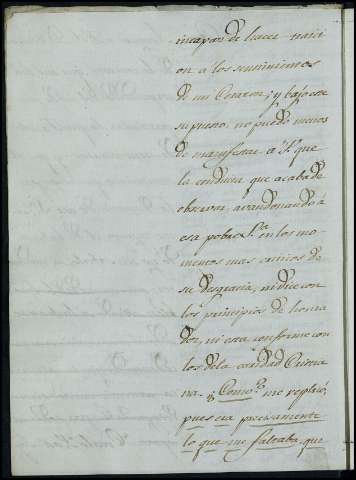 incapas de hacer traici
on a los sentimientos
de mi Corazon; y bajo este
supuesto, no puedo menos
de manifestar a V. que
la conducta que acaba de
observar, avandonando á
esa pobre S.ra en los mo-
mentos mas criticos de
su desgracia, ni dice con
los principios de honra
dez, ni esta conforme con
los de la caridad Cristia
na. Como me replicó,
pues era precisamente
lo que me faltaba, que